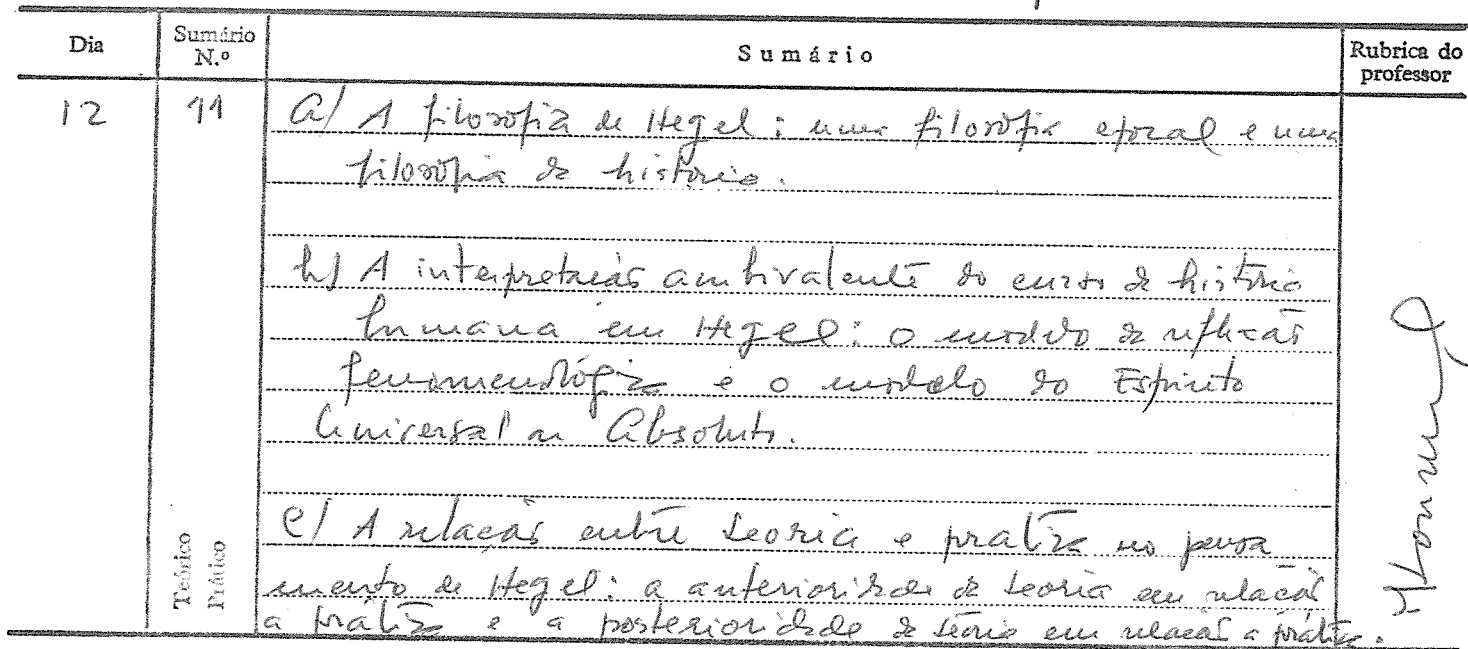 Dia Sumário N.º Sumário Rubrica do professor
12 11 a/ A filosofia de Hegel: uma filosofia epocal e uma
filosofia da história.
b) A interpretação ambivalente do curso da história
humana em Hegel: o modelo da reflexão
fenomenológica e o modelo do Espírito
Universal ou Absoluto.
c/ A relação entre teoria e prática no pensa
mento de Hegel: a anterioridade da teoria em relação
a prática e a posterioridade da teoria em relação a prática.
Teórico
Prático